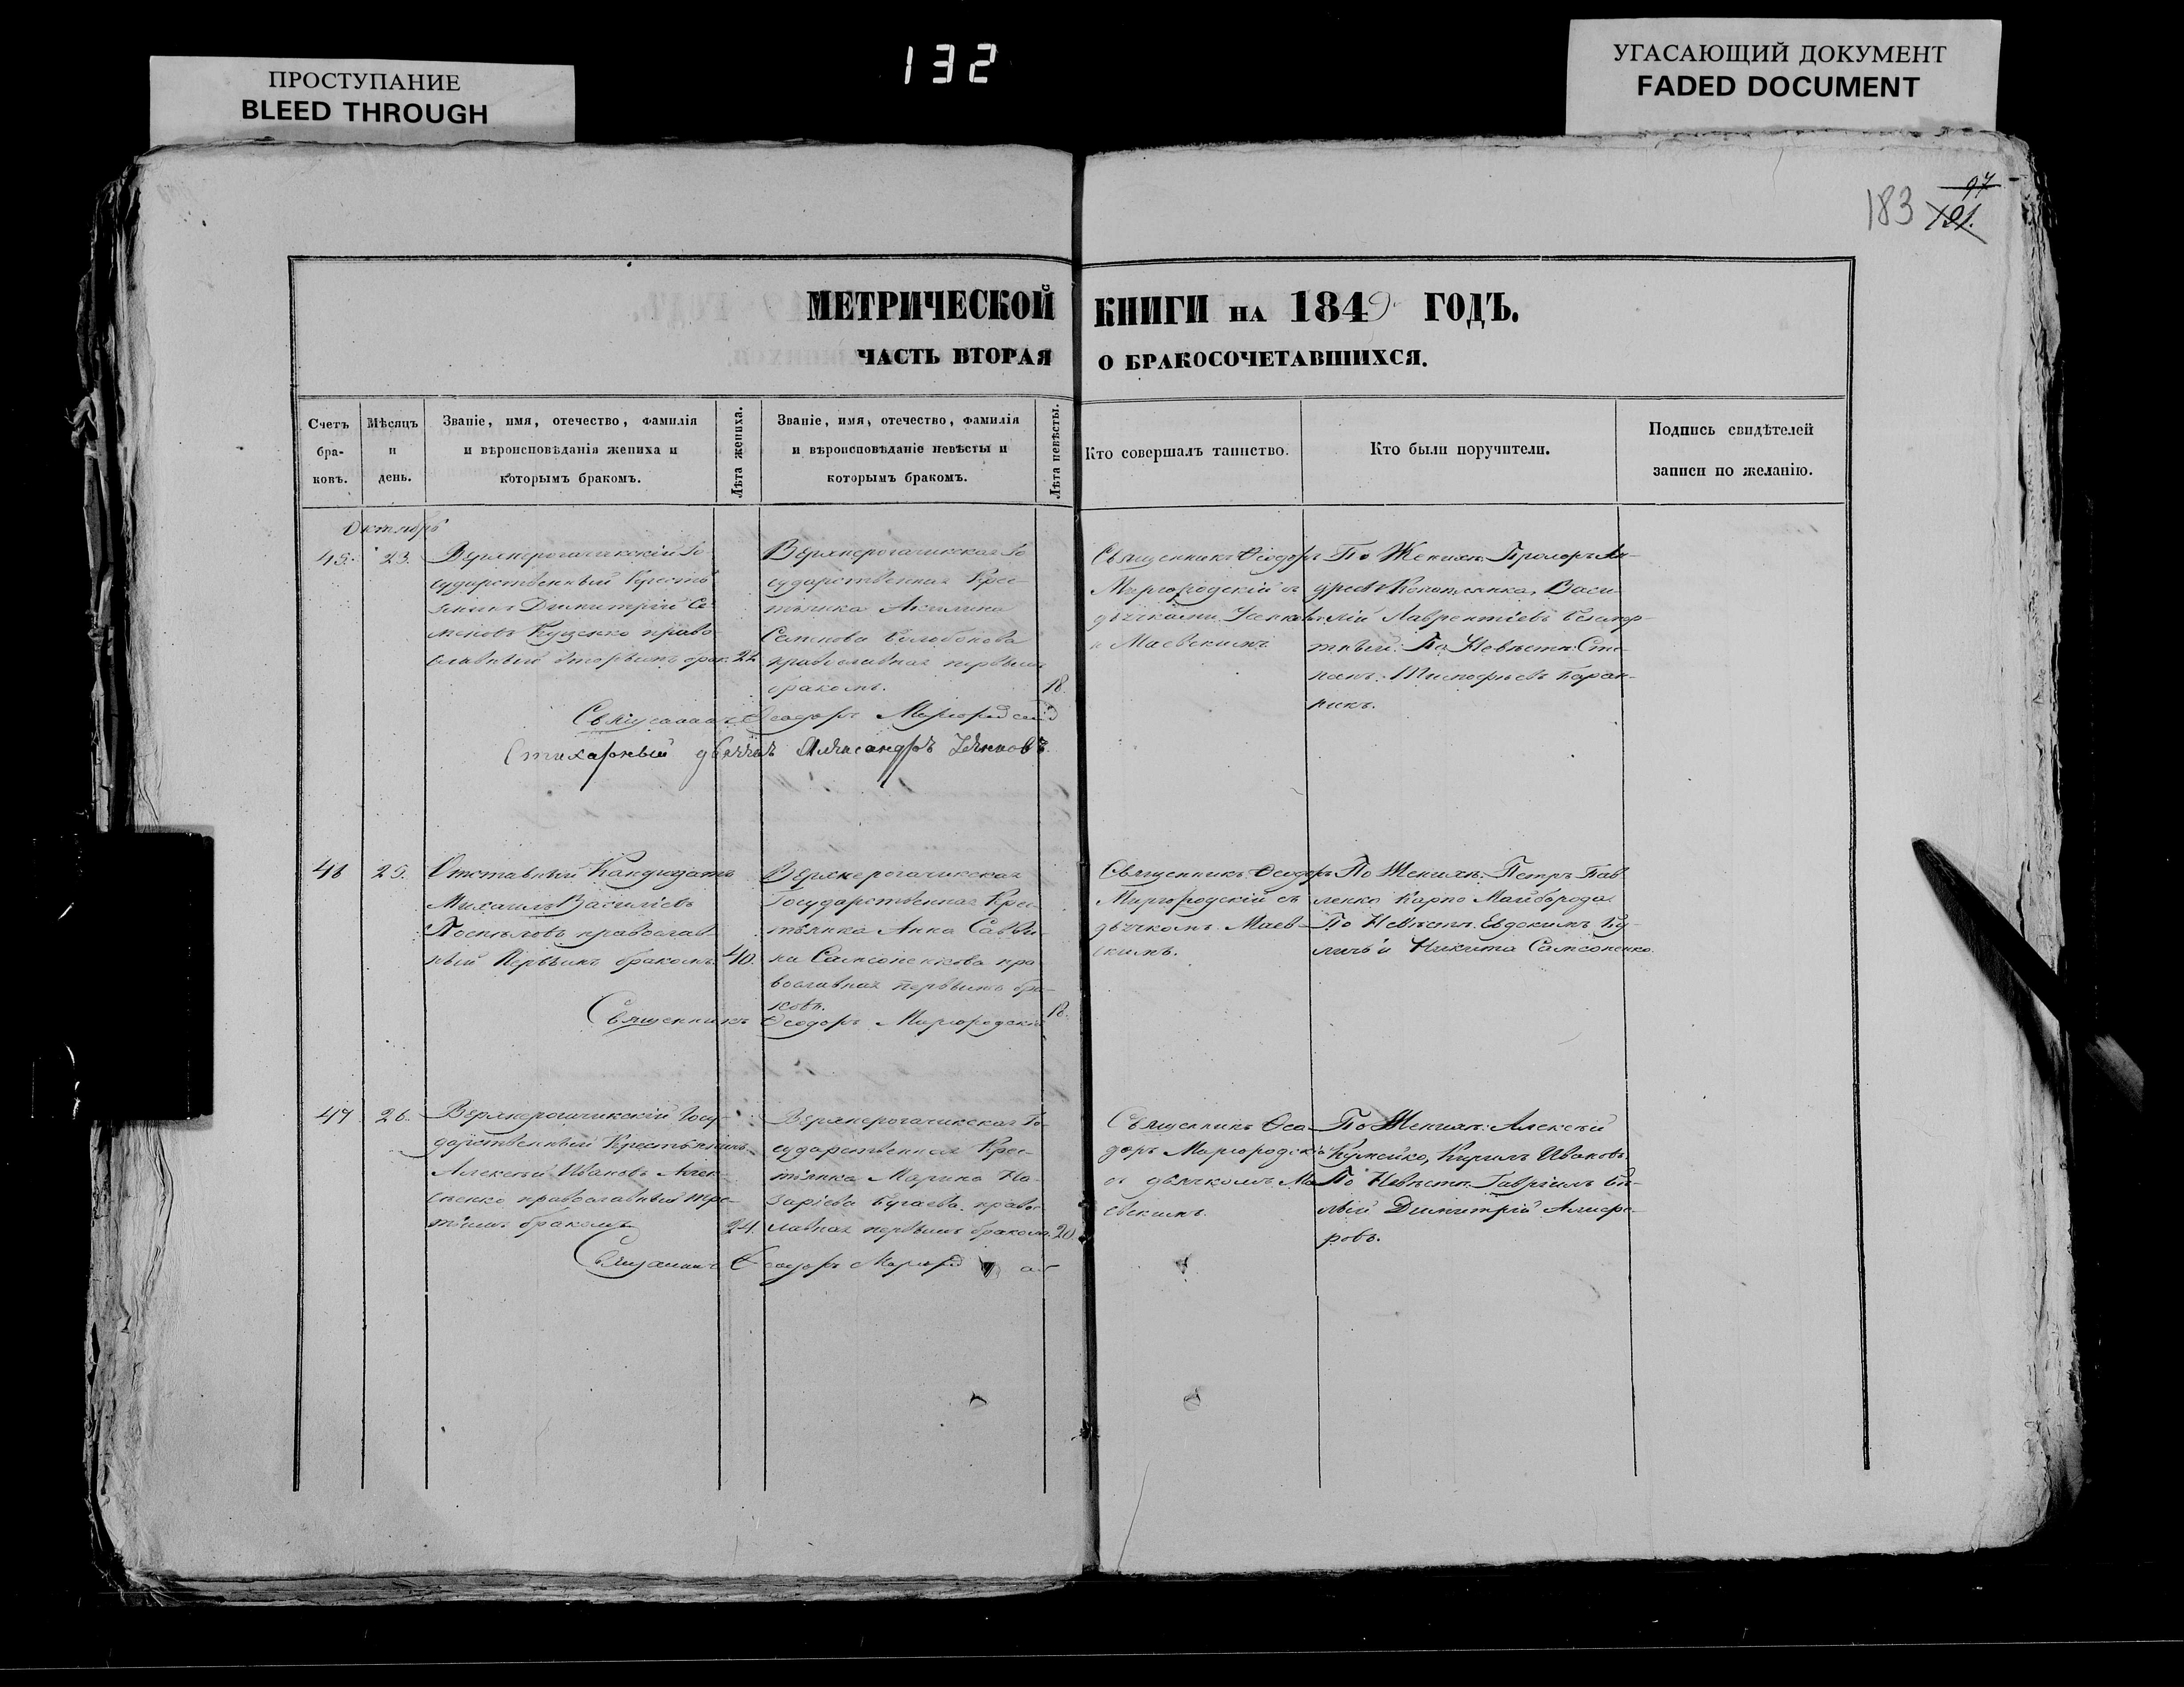 ПРОСТУПАНИЕ
BLEED THROUGH
132
УГАСАЮЩИЙ ДОКУМЕНТ
FADED DOCUMENT
97
183 121.
МЕТРИЧЕСКОЙ КНИГИ НА 1849 ГОДЪ.
ЧАСТЬ ВТОРАЯ О БРАКОСОЧЕТАВШИХСЯ.
Счетъ бра-ковъ.
Мѣсяцъ и день.
Званіе, имя, отечество, фамилія
и вѣроисповѣданія жениха и
которымъ бракомъ.
Лѣта жениха.
Званіе, имя, отечество, фамилія
и вѣроисповѣданіе невѣсты и
которымъ бракомъ.
Лѣта невѣсты.
Кто совершалъ таинство.
Кто были поручители.
Подпись свидѣтелей
записи по желанію.
Октябрь
45. 23.
Верхнерогачикскій Го-
сударственный Кресть-
янинъ Димитрій Се-
меновъ Куценко право-
славный вторымъ брак.
22
Верхнерогачикская Го-
сударственная Крес-
тьянка Акилина
Семенова
православная первымъ
бракомъ.
18.
Священникъ Ѳеодоръ
Миргородскій съ
дьячками Уенковъ
и Маевскимъ
По Женихѣ: Прохоръ Ан-
дреевъ Васи-
лій Лаврентіевъ
По Невѣстѣ: Сте-
панъ Тимофѣевъ Баран-
никъ.
Священникъ Ѳеодоръ Миргородскій
Стихарный дьячекъ Александръ
46 25.
Отставный Кандидатъ
Михаилъ Василіевъ
Поспѣловъ православ-
ный Первымъ бракомъ.
40.
Верхнерогачикская
Государственная Крес-
тьянка Анна Савви-
на Самсоненкова пра-
вославная первымъ бра-
комъ.
18.
Священникъ Ѳеодоръ
Миргородскій съ
дьячкомъ Маев-
скимъ.
По Женихѣ: Петръ Пав-
ленко Карпо Майборода
По Невѣстѣ: Евдокимъ Ку-
личь и Никита Самсоненко
Священникъ Ѳеодоръ Миргородскій
47 26.
Верхнерогачикскій Госу-
дарственный Крестьянинъ
Алексѣй Ивановъ Алек-
сѣенко православный тре-
тьимъ бракомъ
24.
Верхнерогачикская Го-
сударственная Крес-
тьянка Марина На-
заріева Бугаева право-
славная первымъ бракомъ.
20.
Священникъ Ѳео-
доръ Миргородскій
съ дьячкомъ Ма-
евскимъ.
По Женихѣ: Алексѣй
Кирилъ Ивановъ
По Невѣстѣ: Гавріилъ Бѣ-
лый Димитрій Алифе-
ровъ.
Священникъ Ѳеодоръ